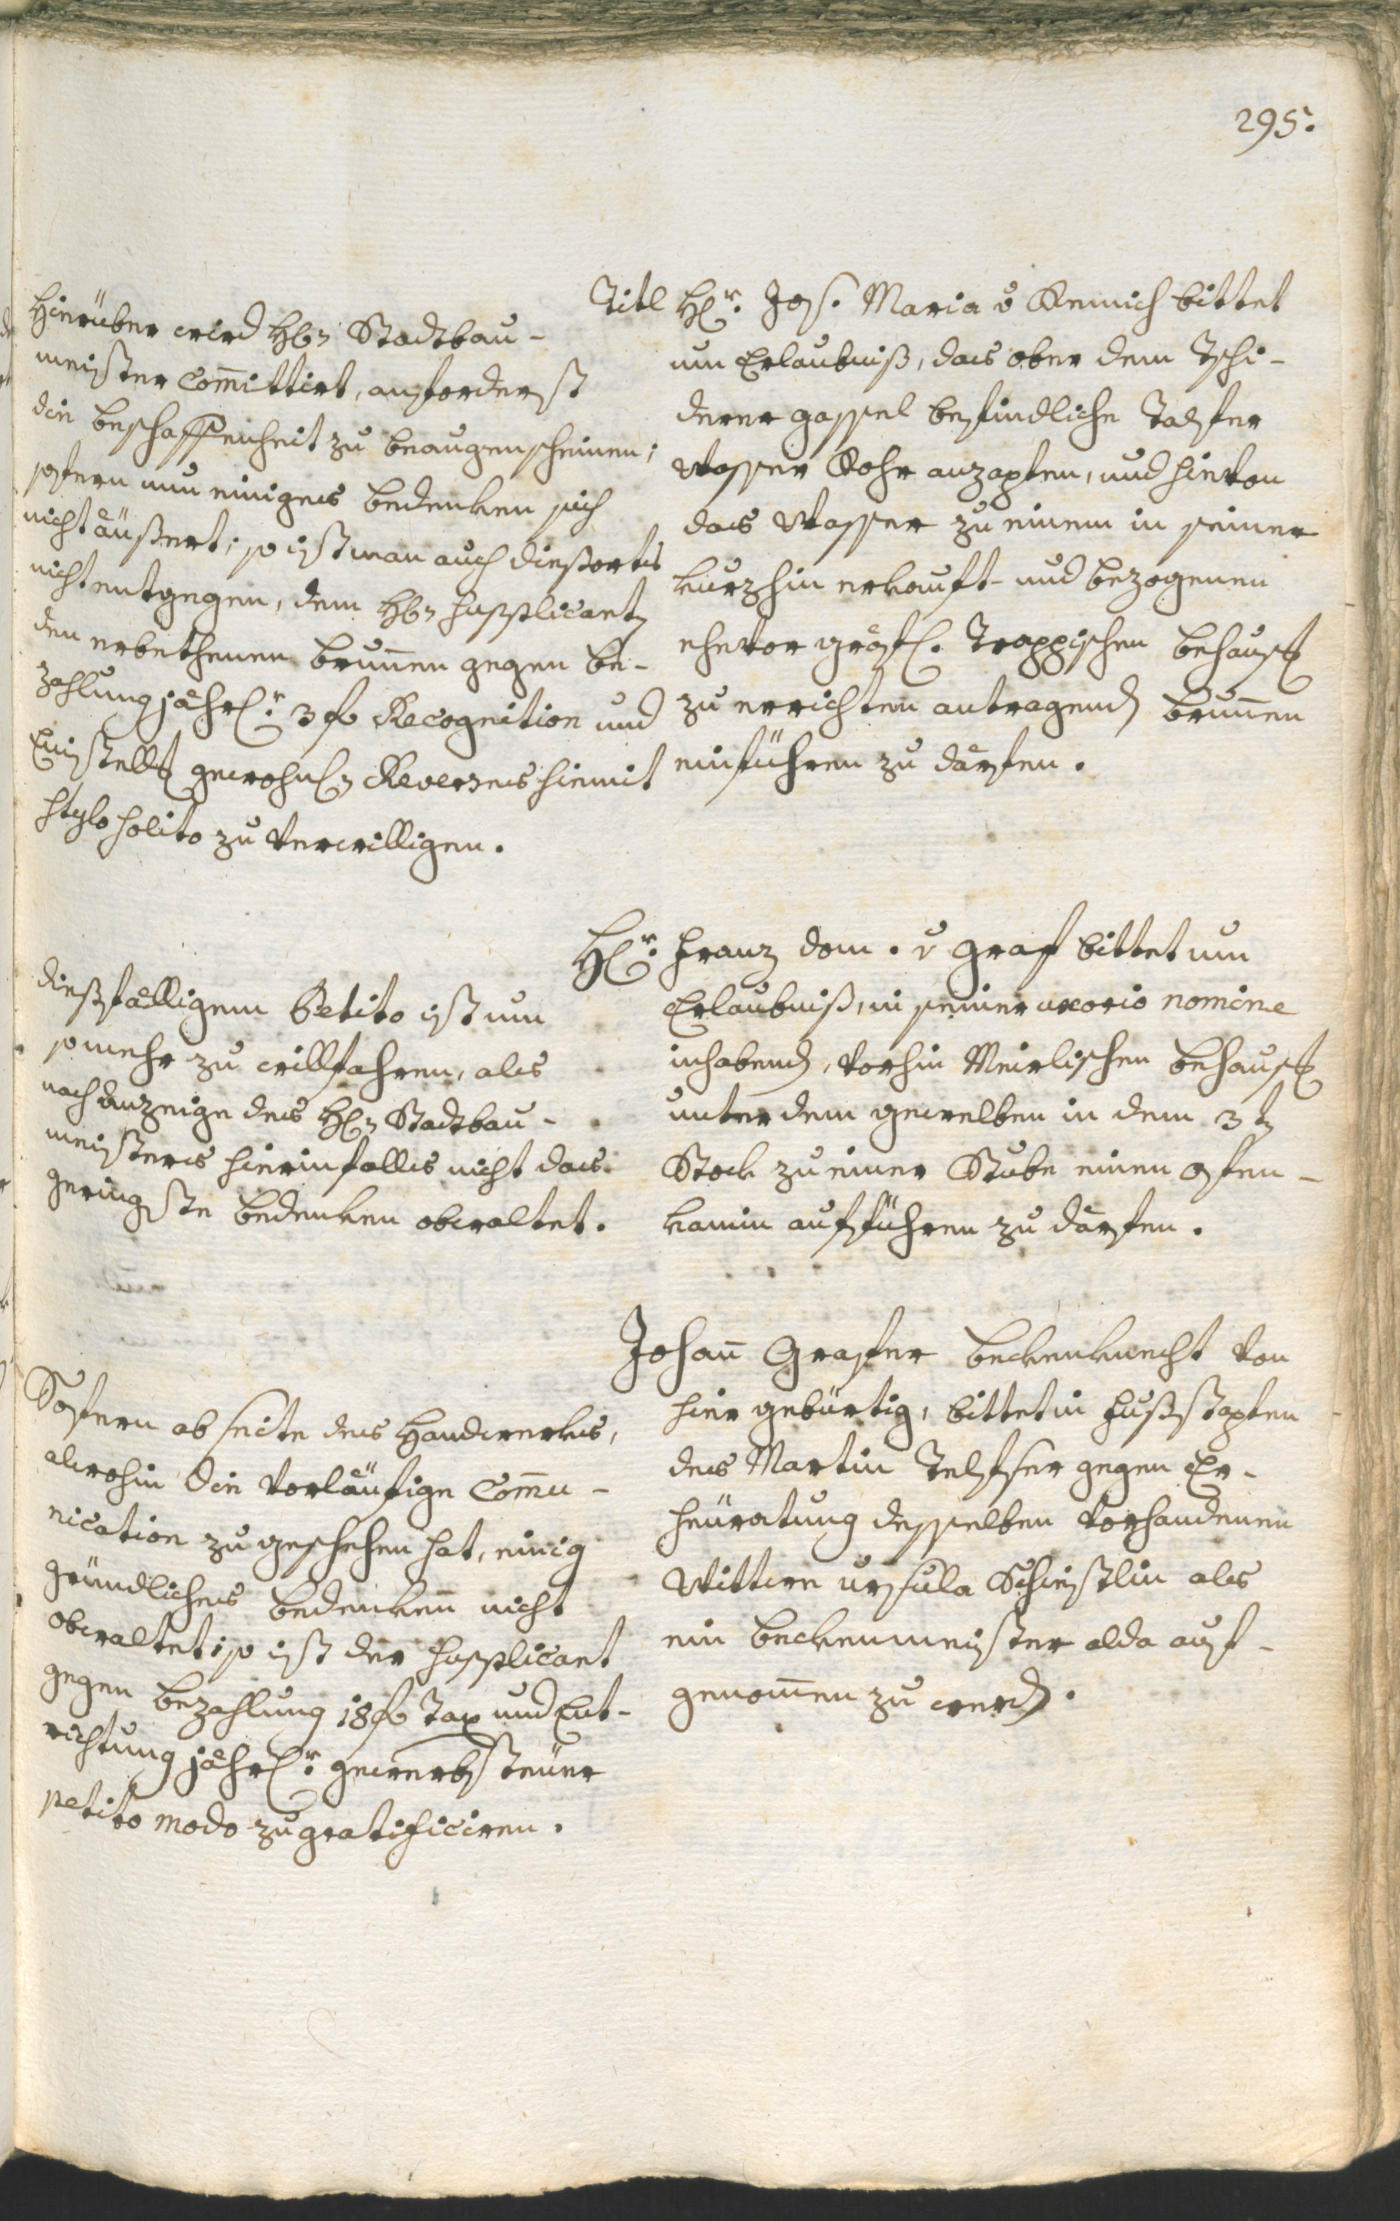 295.
Titl Hr. Jos. Maria v Remich bittet
um Erlaubniß, das ober dem Tschi-
derer gassel befindliche Talfer
Wasser Rohr anzapfen, und hievon
das Wasser zu einem in seiner
kurzhin erkauft- und bezogenen
ehevor gräfl. Trappischen Behausg
zu errichten antragend Brunnen
einführen zu därfen.
Hierüber wird Hrn Stadtbau-
meister Committirt, anforderist
die beschaffenheit zu beaugenscheinen;
sofern nun einiges bedenken sich
nicht äußert; so ist man auch dießorts
nicht entgegen, dem Hrn Supplicantn
den erbethenen brunnen gegen be-
zahlung jährlr. 3 f Recognition und
Einstellg gewohnln Reverses hiemit
stylo solito zu verwilligen.
Hr. Franz Dom. v Graf bittet um
Erlaubniß, in seiner uxorio nomine
inhabend, vorhin Meirlischen behausg
unter dem gewelben in dem 3tn
Stock zu einer Stube einen ofen-
kamin aufführen zu därfen.
dießfälligem Petito ist um
so mehr zu willfahren, als
nach Anzeige des Hrn Stadtbau-
meisters hierinfalls nicht das
geringste bedenken obwaltet.
Johann Grafer beckenknecht von
hier gebürtig, bittet in fußstapfen
des Martin Telfser gegen Er-
heüratung desselben vorhandenen
Wittwe Ursula Schiestlin als
ein beckenmeister alda auf-
genommen zu werd.
Sofern ab seite des Handwerks,
alwohin die vorläufige Commu-
nication zu geschehen hat, einig
gründliches bedenken nicht
obwaltet; so ist der Supplicant
gegen bezahlung 18 f Tax und Ent-
richtung jährlr. gewerbsteüer
petito modo zu gratificiren.